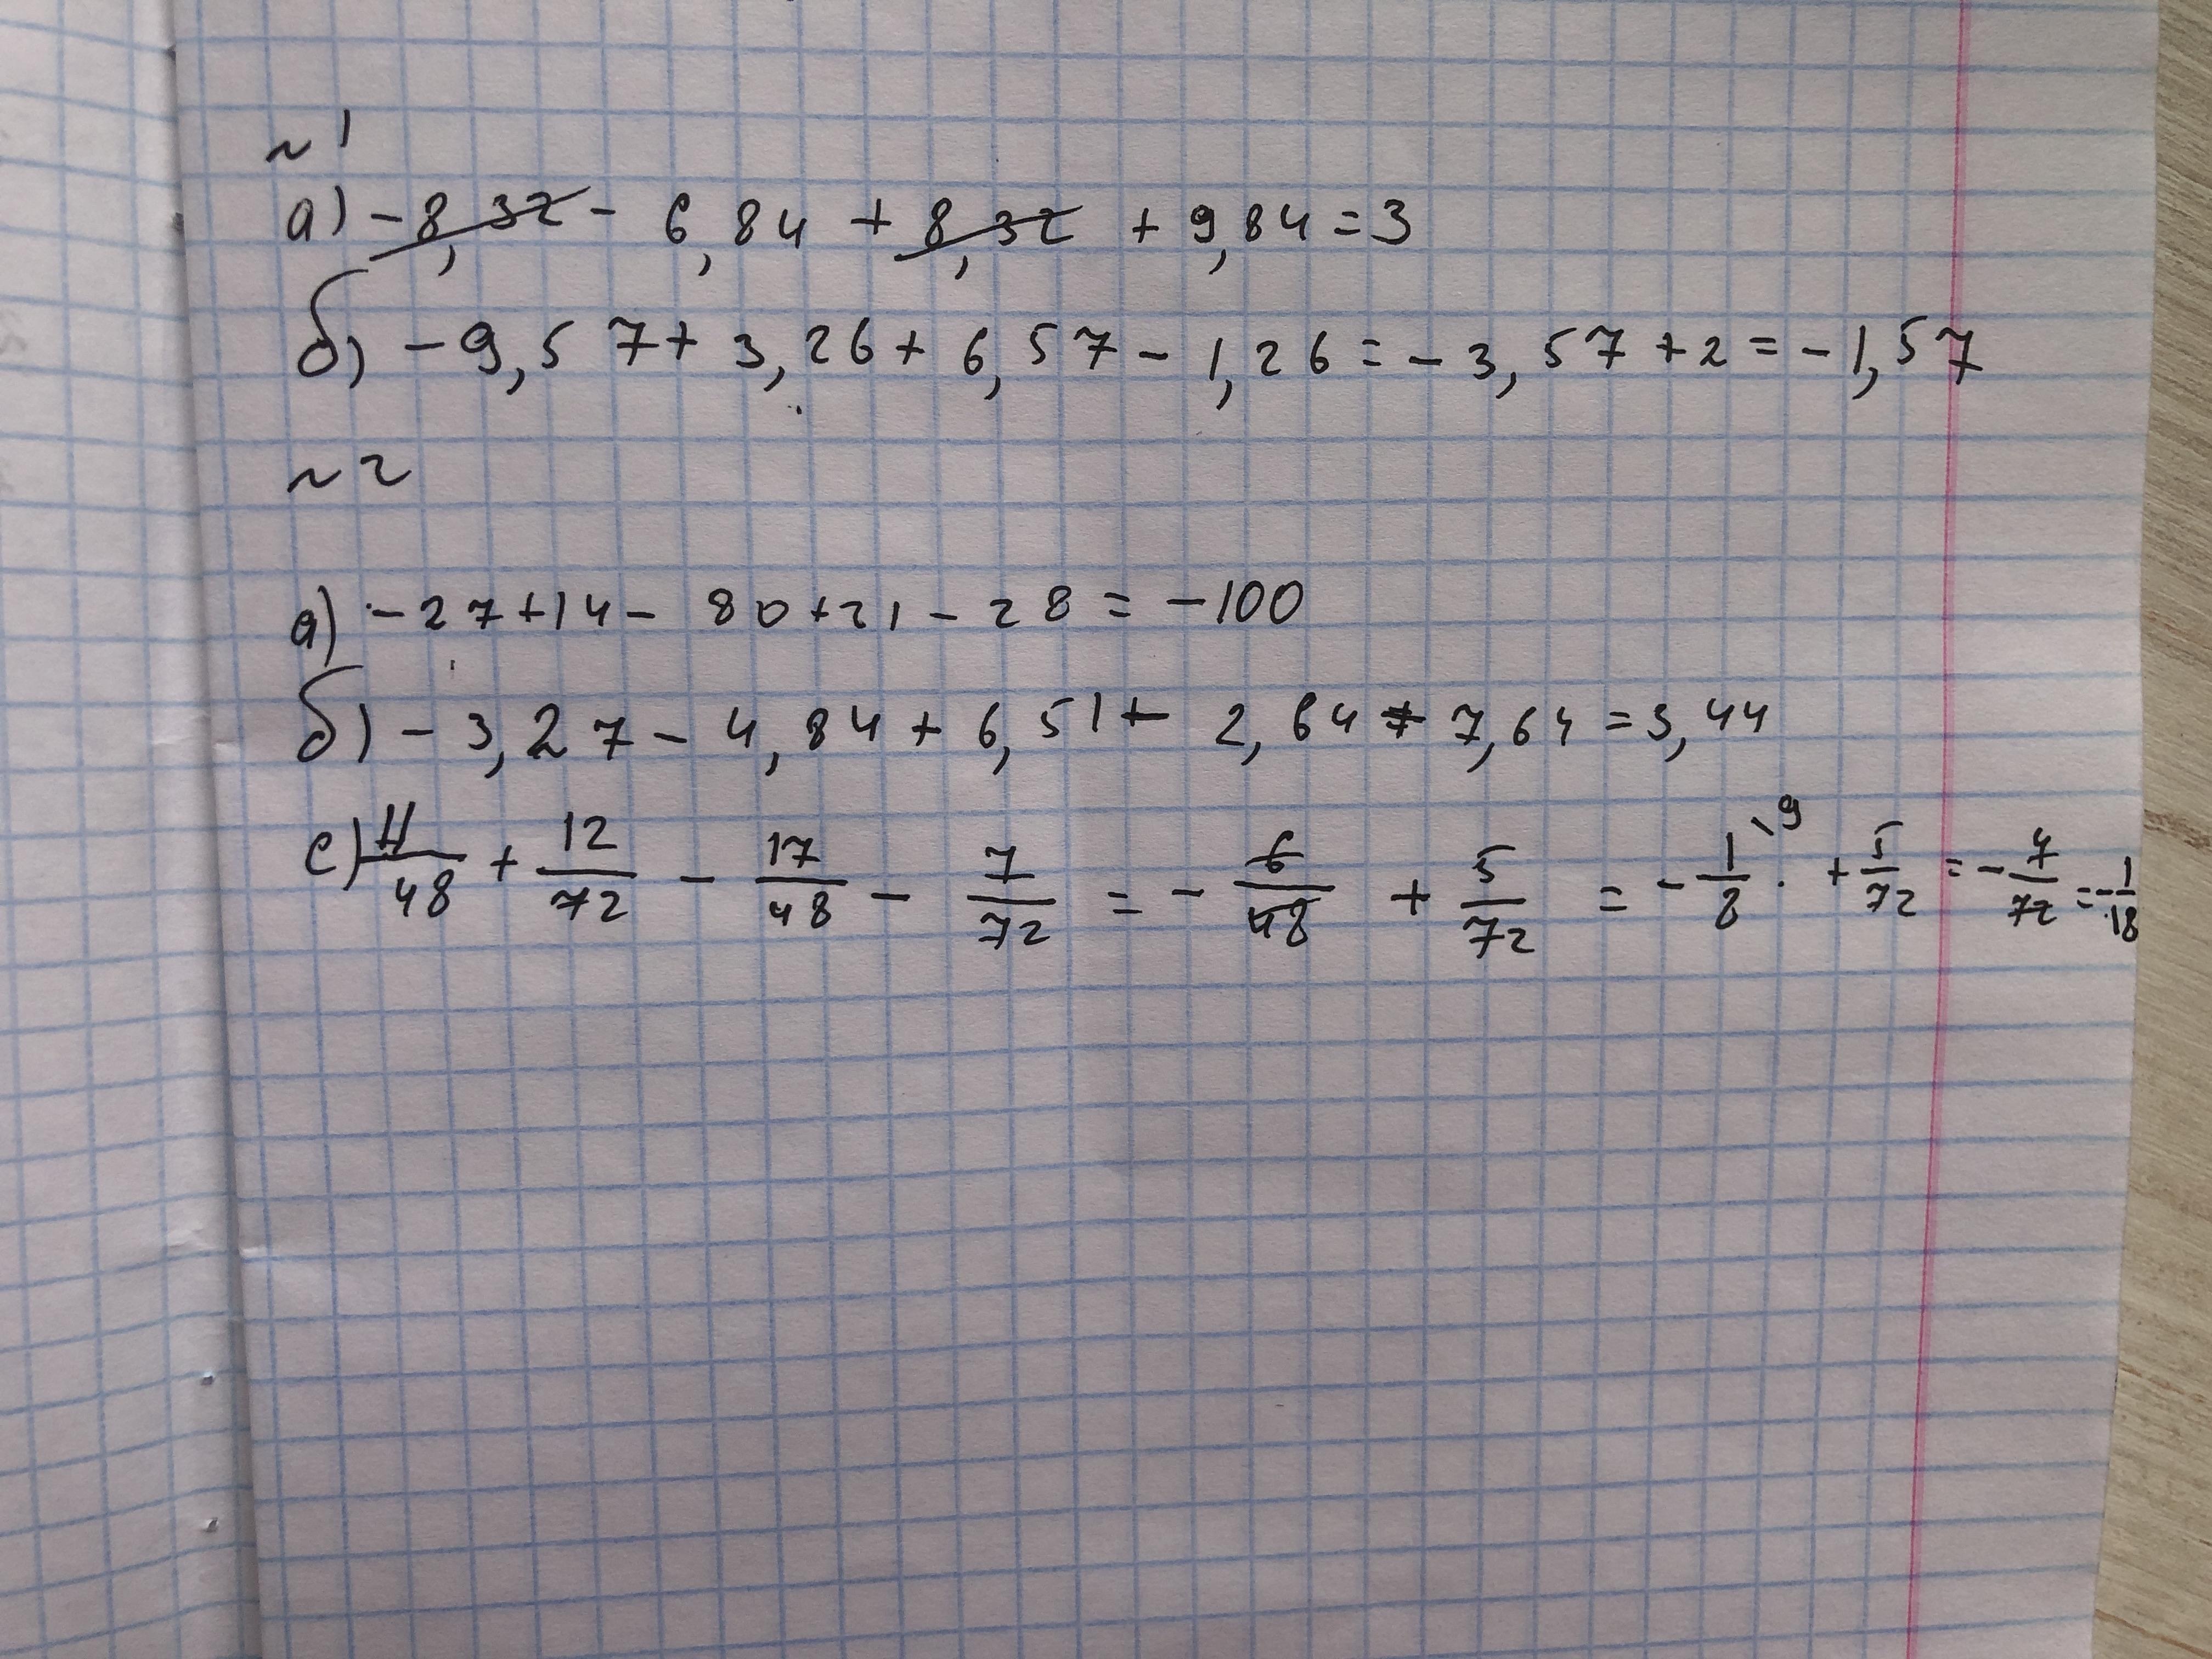 ~ 1
а) -8,32 - 6,84 + 8,32 + 9,84 = 3
б) -9,57 + 3,26 + 6,57 - 1,26 = -3,57 + 2 = -1,57
~ 2
а) -27 + 14 - 80 + 21 - 28 = -100
б) -3,27 - 4,84 + 6,51 + 2,64 + 7,64 = 3,44
с) 11/48 + 12/72 - 17/48 - 7/72 = - 6/48 + 5/72 = - 1/8 \9 + 5/72 = - 4/72 = - 1/18